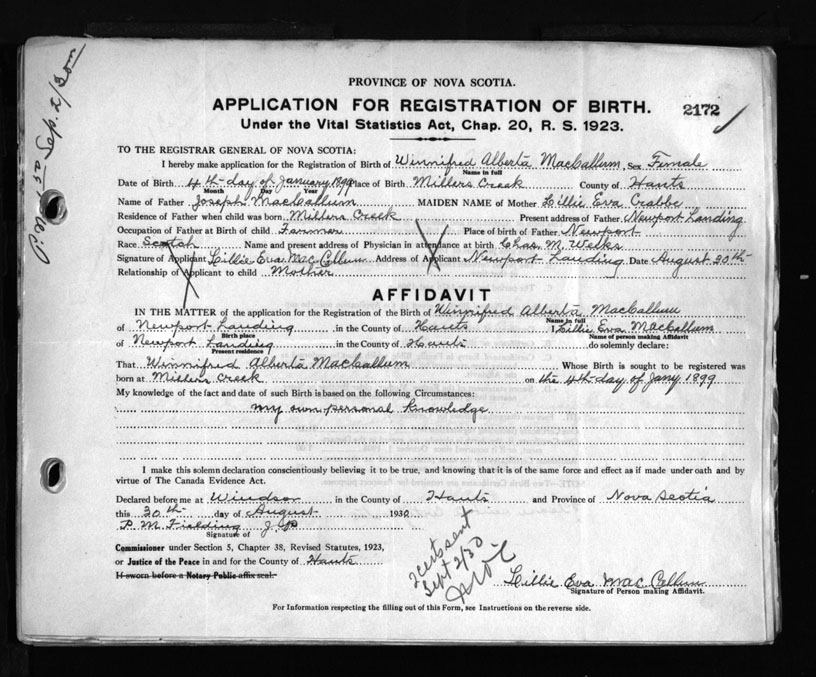 Sep. 2/30
PROVINCE OF NOVA SCOTIA.
APPLICATION FOR REGISTRATION OF BIRTH. 2172
Under the Vital Statistics Act, Chap. 20, R. S. 1923.
TO THE REGISTRAR GENERAL OF NOVA SCOTIA:
I hereby make application for the Registration of Birth of Winnifred Alberta MacCallum, Sex Female
Name in full
Date of Birth 4th day of January 1899 Place of Birth Millers Creek County of Hants
Month Day Year
Name of Father Joseph MacCallum MAIDEN NAME of Mother Lillie Eva Crabbe
Residence of Father when child was born Millers Creek Present address of Father Newport Landing
Occupation of Father at Birth of child Farmer Place of birth of Father Newport
Race Scotch Name and present address of Physician in attendance at birth Chas. M. Welks
Signature of Applicant Lillie Eva MacCallum Address of Applicant Newport Landing Date August 30th
Relationship of Applicant to child Mother
AFFIDAVIT
IN THE MATTER of the application for the Registration of the Birth of Winnifred Alberta MacCallum
Name in full
of Newport Landing in the County of Hants I, Lillie Eva MacCallum
Birth place Name of person making Affidavit
of Newport Landing in the County of Hants do solemnly declare:
Present residence
That Winnifred Alberta MacCallum Whose Birth is sought to be registered was
born at Millers Creek on the 4th day of Jany 1899
My knowledge of the fact and date of such Birth is based on the following Circumstances:
my own personal knowledge
I make this solemn declaration conscientiously believing it to be true, and knowing that it is of the same force and effect as if made under oath and by
virtue of The Canada Evidence Act.
Declared before me at Windsor in the County of Hants and Province of Nova Scotia
this 30th day of August 1930
P. M. Fielding J P
Signature of
Commissioner under Section 5, Chapter 38, Revised Statutes, 1923,
or Justice of the Peace in and for the County of Hants
If sworn before a Notary Public affix seal.
2 certs sent
Sept 2/30
Lillie Eva MacCallum
Signature of Person making Affidavit.
For Information respecting the filling out of this Form, see Instructions on the reverse side.